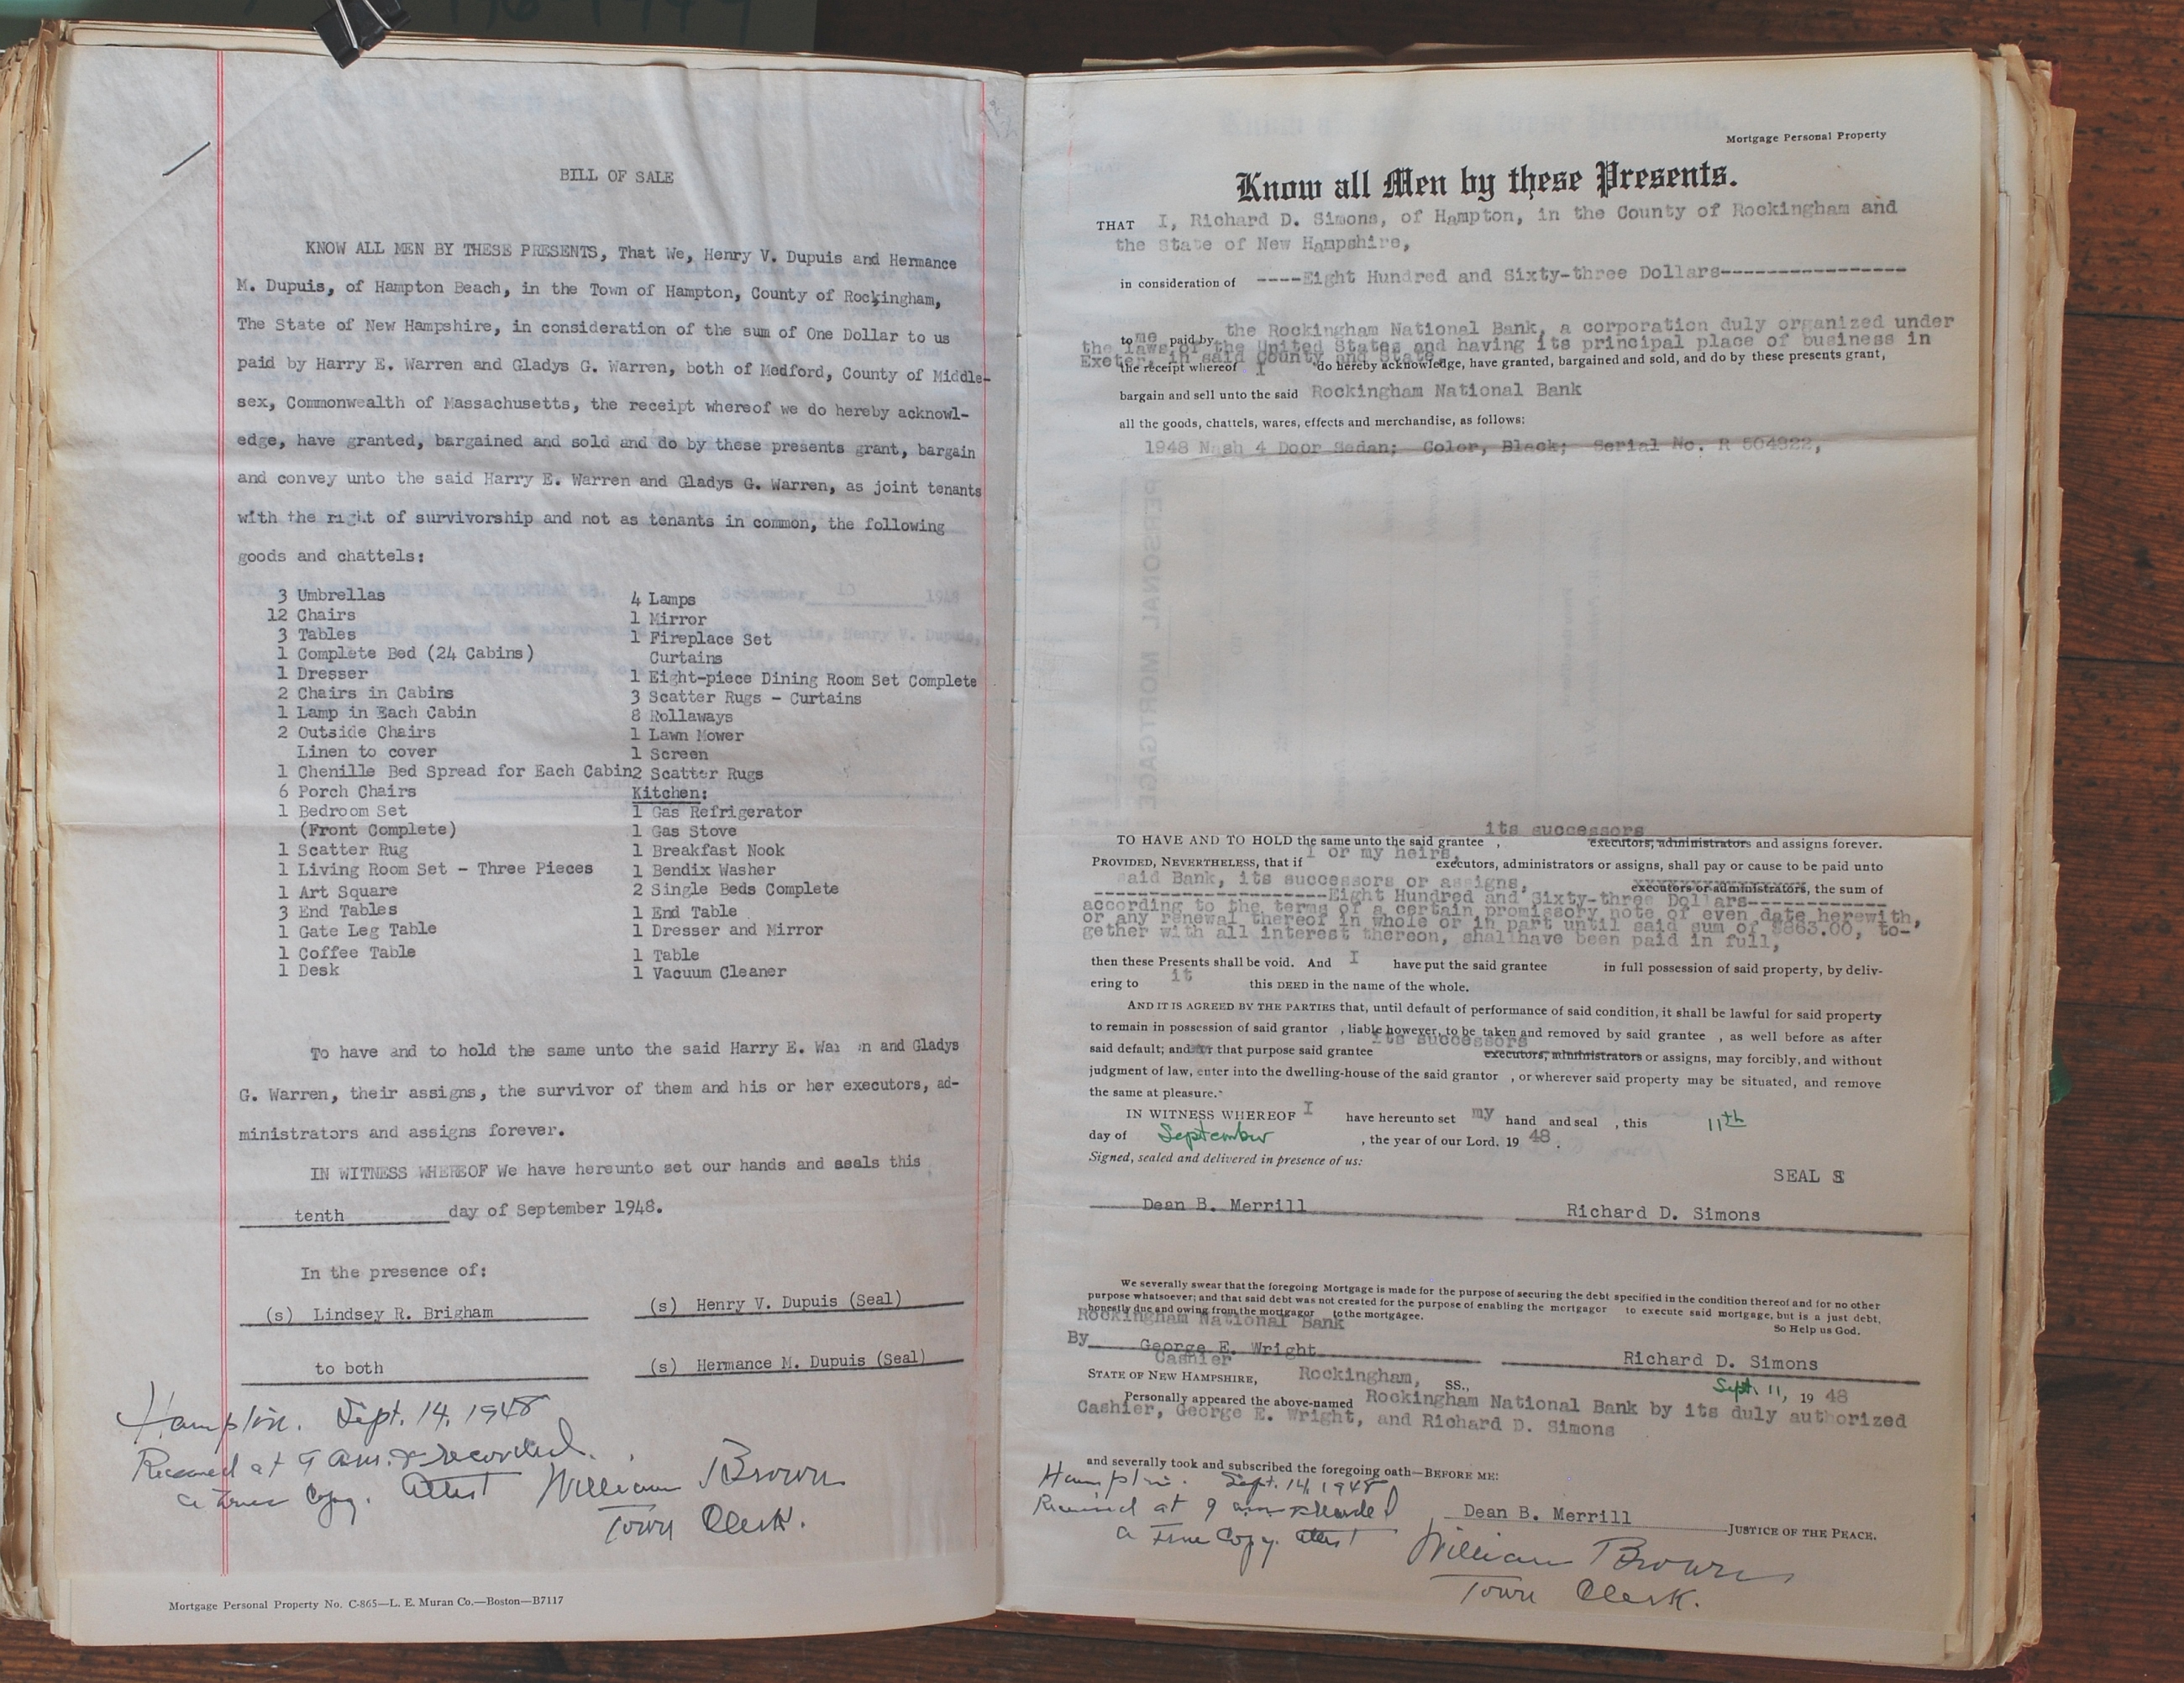 BILL OF SALE
KNOW ALL MEN BY THESE PRESENTS, That We, Henry V. Dupuis and Hermance
M. Dupuis, of Hampton Beach, in the Town of Hampton, County of Rockingham,
The State of New Hampshire, in consideration of the sum of One Dollar to us
paid by Harry E. Warren and Gladys G. Warren, both of Medford, County of Middle-
sex, Commonwealth of Massachusetts, the receipt whereof we do hereby acknowl-
edge, have granted, bargained and sold and do by these presents grant, bargain
and convey unto the said Harry E. Warren and Gladys G. Warren, as joint tenants
with the right of survivorship and not as tenants in common, the following
goods and chattels:
3 Umbrellas
12 Chairs
3 Tables
1 Complete Bed (24 Cabins)
1 Dresser
2 Chairs in Cabins
1 Lamp in Each Cabin
2 Outside Chairs
Linen to cover
1 Chenille Bed Spread for Each Cabin
6 Porch Chairs
1 Bedroom Set
(Front Complete)
1 Scatter Rug
1 Living Room Set - Three Pieces
1 Art Square
3 End Tables
1 Gate Leg Table
1 Coffee Table
1 Desk
4 Lamps
1 Mirror
1 Fireplace Set
Curtains
1 Eight-piece Dining Room Set Complete
3 Scatter Rugs - Curtains
8 Rollaways
1 Lawn Mower
1 Screen
2 Scatter Rugs
Kitchen:
1 Gas Refrigerator
1 Gas Stove
1 Breakfast Nook
1 Bendix Washer
2 Single Beds Complete
1 End Table
1 Dresser and Mirror
1 Table
1 Vacuum Cleaner
To have and to hold the same unto the said Harry E. Warren and Gladys
G. Warren, their assigns, the survivor of them and his or her executors, ad-
ministrators and assigns forever.
IN WITNESS WHEREOF We have hereunto set our hands and seals this
tenth day of September 1948.
In the presence of:
(s) Lindsey R. Brigham (s) Henry V. Dupuis (Seal)
to both (s) Hermance M. Dupuis (Seal)
Hampton. Sept. 14, 1948
Received at 9 a.m. & recorded.
a true Copy. Attest William Brown
Town Clerk.
Mortgage Personal Property No. C-865—L. E. Muran Co.—Boston—B7117
Mortgage Personal Property
Know all Men by these Presents.
THAT I, Richard D. Simons, of Hampton, in the County of Rockingham and
the State of New Hampshire,
in consideration of ----Eight Hundred and Sixty-three Dollars-----------------
to me paid by the Rockingham National Bank, a corporation duly organized under
the laws of the United States and having its principal place of business in
Exeter, in said County and State,
the receipt whereof I do hereby acknowledge, have granted, bargained and sold, and do by these presents grant,
bargain and sell unto the said Rockingham National Bank
all the goods, chattels, wares, effects and merchandise, as follows:
1948 Nash 4 Door Sedan; Color, Black; Serial No. R 504822,
PERSONAL MORTGAGE
TO HAVE AND TO HOLD the same unto the said grantee , its successors executors, administrators and assigns forever.
PROVIDED, NEVERTHELESS, that if I or my heirs, executors, administrators or assigns, shall pay or cause to be paid unto
said Bank, its successors or assigns, executors or administrators, the sum of
--------------------Eight Hundred and Sixty-three Dollars------------
according to the terms of a certain promissory note of even date herewith,
or any renewal thereof in whole or in part until said sum of $863.00, to-
gether with all interest thereon, shall have been paid in full,
then these Presents shall be void. And I have put the said grantee in full possession of said property, by deliv-
ering to it this DEED in the name of the whole.
AND IT IS AGREED BY THE PARTIES that, until default of performance of said condition, it shall be lawful for said property
to remain in possession of said grantor , liable however, to be taken and removed by said grantee , as well before as after
said default; and for that purpose said grantee its successors executors, administrators or assigns, may forcibly, and without
judgment of law, enter into the dwelling-house of the said grantor , or wherever said property may be situated, and remove
the same at pleasure.
IN WITNESS WHEREOF I have hereunto set my hand and seal , this 11th
day of September , the year of our Lord. 19 48.
Signed, sealed and delivered in presence of us:
SEAL S
Dean B. Merrill Richard D. Simons
We severally swear that the foregoing Mortgage is made for the purpose of securing the debt specified in the condition thereof and for no other
purpose whatsoever; and that said debt was not created for the purpose of enabling the mortgagor to execute said mortgage, but is a just debt,
honestly due and owing from the mortgagor to the mortgagee.
So Help us God.
Rockingham National Bank
By George E. Wright Richard D. Simons
Cashier
STATE OF NEW HAMPSHIRE, Rockingham, SS., Sept. 11, 19 48
Personally appeared the above-named Rockingham National Bank by its duly authorized
Cashier, George E. Wright, and Richard D. Simons
and severally took and subscribed the foregoing oath—BEFORE ME:
Hampton. Sept. 14, 1948
Received at 9 am & recorded
a True Copy. Attest
Dean B. Merrill JUSTICE OF THE PEACE.
William Brown
Town Clerk.